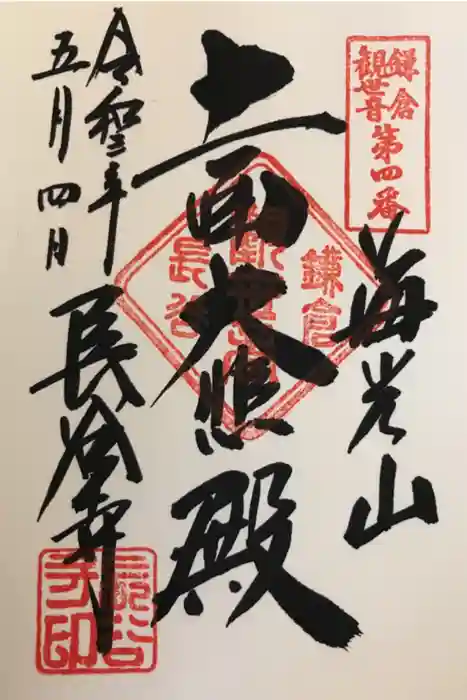 鎌倉
観世音
第四番
海光山
十一面大悲殿
鎌倉
長谷
令和三年
五月四日
長谷寺
長谷
寺印